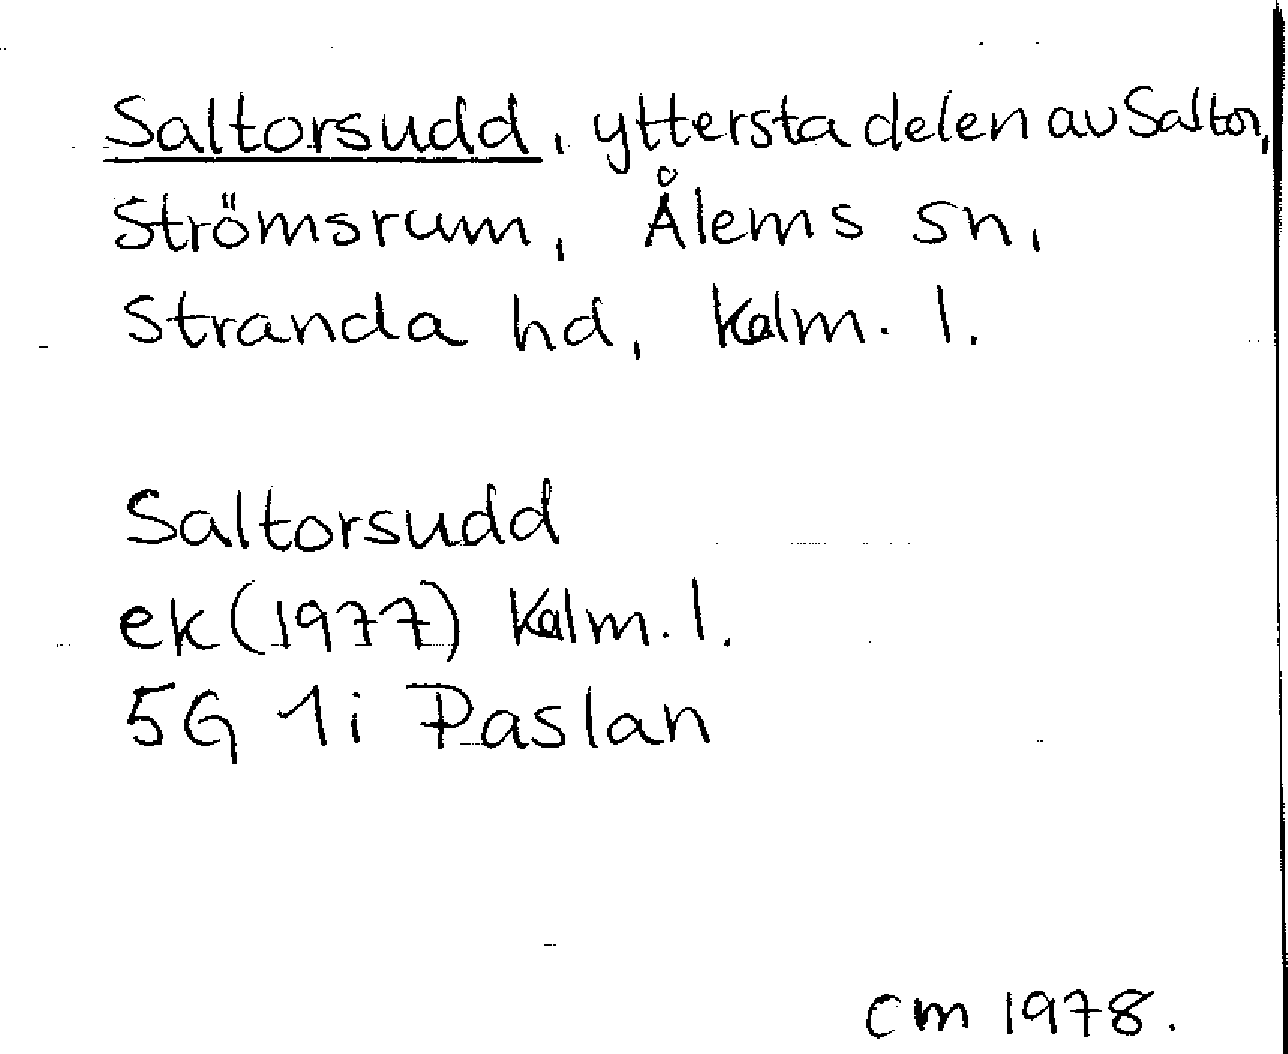 Saltorsudd, yttersta delen av Saltor,
Strömsrum, Ålems sn,
Stranda hd, Kalm. l.
Saltorsudd
ek (1977) Kalm. l.
5G 1i Paslan
CM 1978.